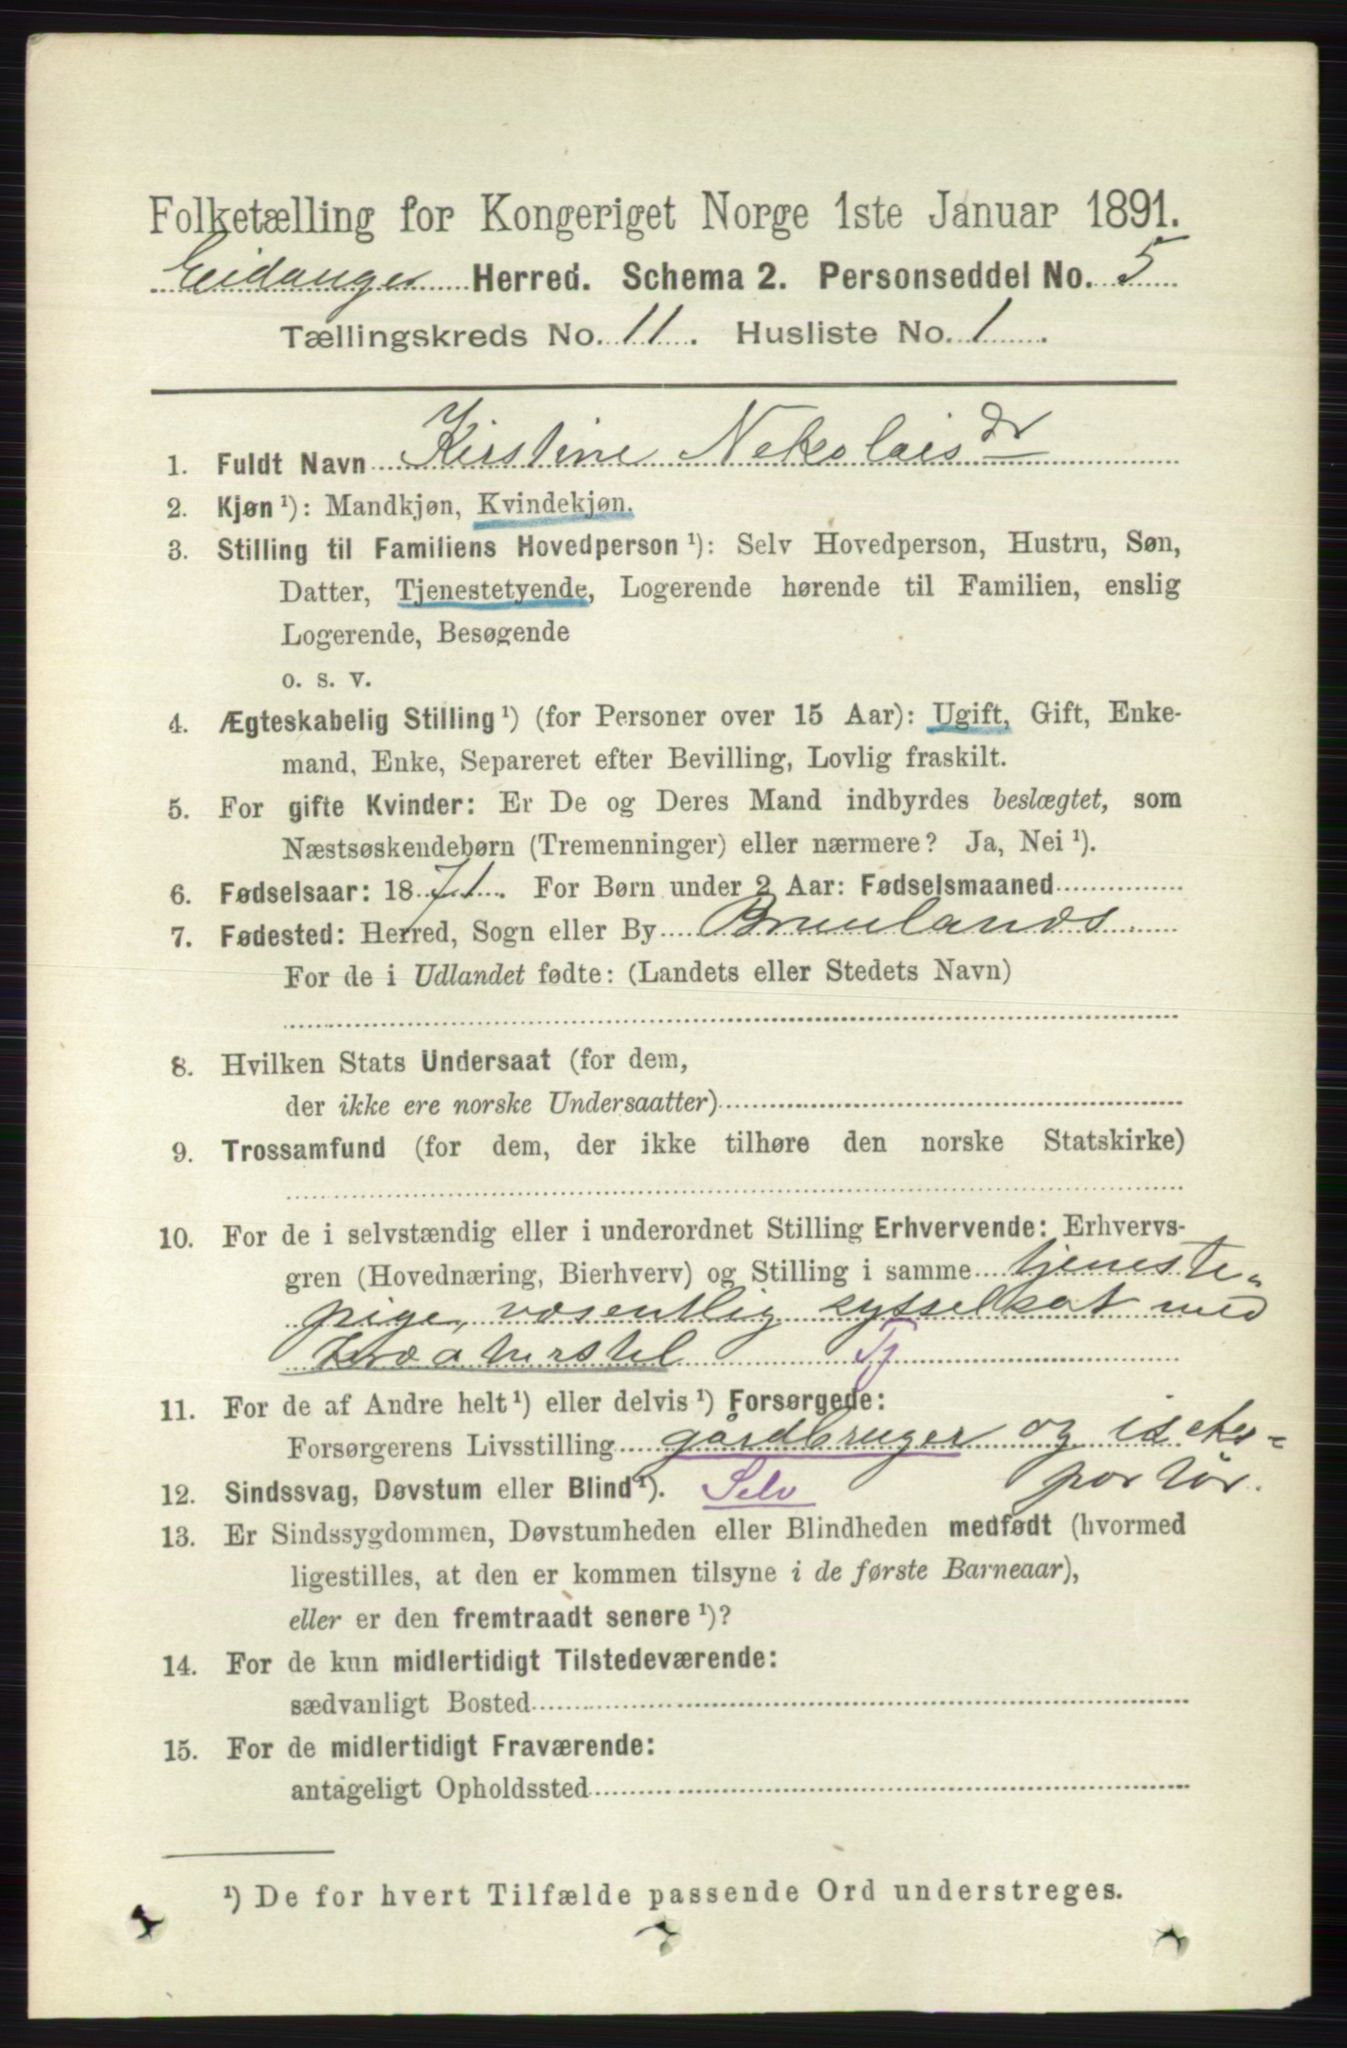 Folketælling for Kongeriget Norge 1ste Januar 1891.
Eidanger Herred. Schema 2. Personseddel No. 5
Tællingskreds No. 11. Husliste No. 1.
1. Fuldt Navn Kirstine Nekolais dr
2. Kjøn ¹): Mandkjøn, Kvindekjøn.
3. Stilling til Familiens Hovedperson ¹): Selv Hovedperson, Hustru, Søn,
Datter, Tjenestetyende, Logerende hørende til Familien, enslig
Logerende, Besøgende
o. s. v.
4. Ægteskabelig Stilling ¹) (for Personer over 15 Aar): Ugift, Gift, Enke-
mand, Enke, Separeret efter Bevilling, Lovlig fraskilt.
5. For gifte Kvinder: Er De og Deres Mand indbyrdes beslægtet, som
Næstsøskendebørn (Tremenninger) eller nærmere? Ja, Nei ¹).
6. Fødselsaar: 1871. For Børn under 2 Aar: Fødselsmaaned
7. Fødested: Herred, Sogn eller By Brunlands
For de i Udlandet fødte: (Landets eller Stedets Navn)
8. Hvilken Stats Undersaat (for dem,
der ikke ere norske Undersaatter)
9. Trossamfund (for dem, der ikke tilhøre den norske Statskirke)
10. For de i selvstændig eller i underordnet Stilling Erhvervende: Erhvervs-
gren (Hovednæring, Bierhverv) og Stilling i samme tjeneste-
pige, væsentlig sysselsat med
Tj
11. For de af Andre helt ¹) eller delvis ¹) Forsørgede:
Forsørgerens Livsstilling gårdbruger og iseks-
12. Sindssvag, Døvstum eller Blind ¹). Selv portør.
13. Er Sindssygdommen, Døvstumheden eller Blindheden medfødt (hvormed
ligestilles, at den er kommen tilsyne i de første Barneaar),
eller er den fremtraadt senere ¹)?
14. For de kun midlertidigt Tilstedeværende:
sædvanligt Bosted
15. For de midlertidigt Fraværende:
antageligt Opholdssted
¹) De for hvert Tilfælde passende Ord understreges.